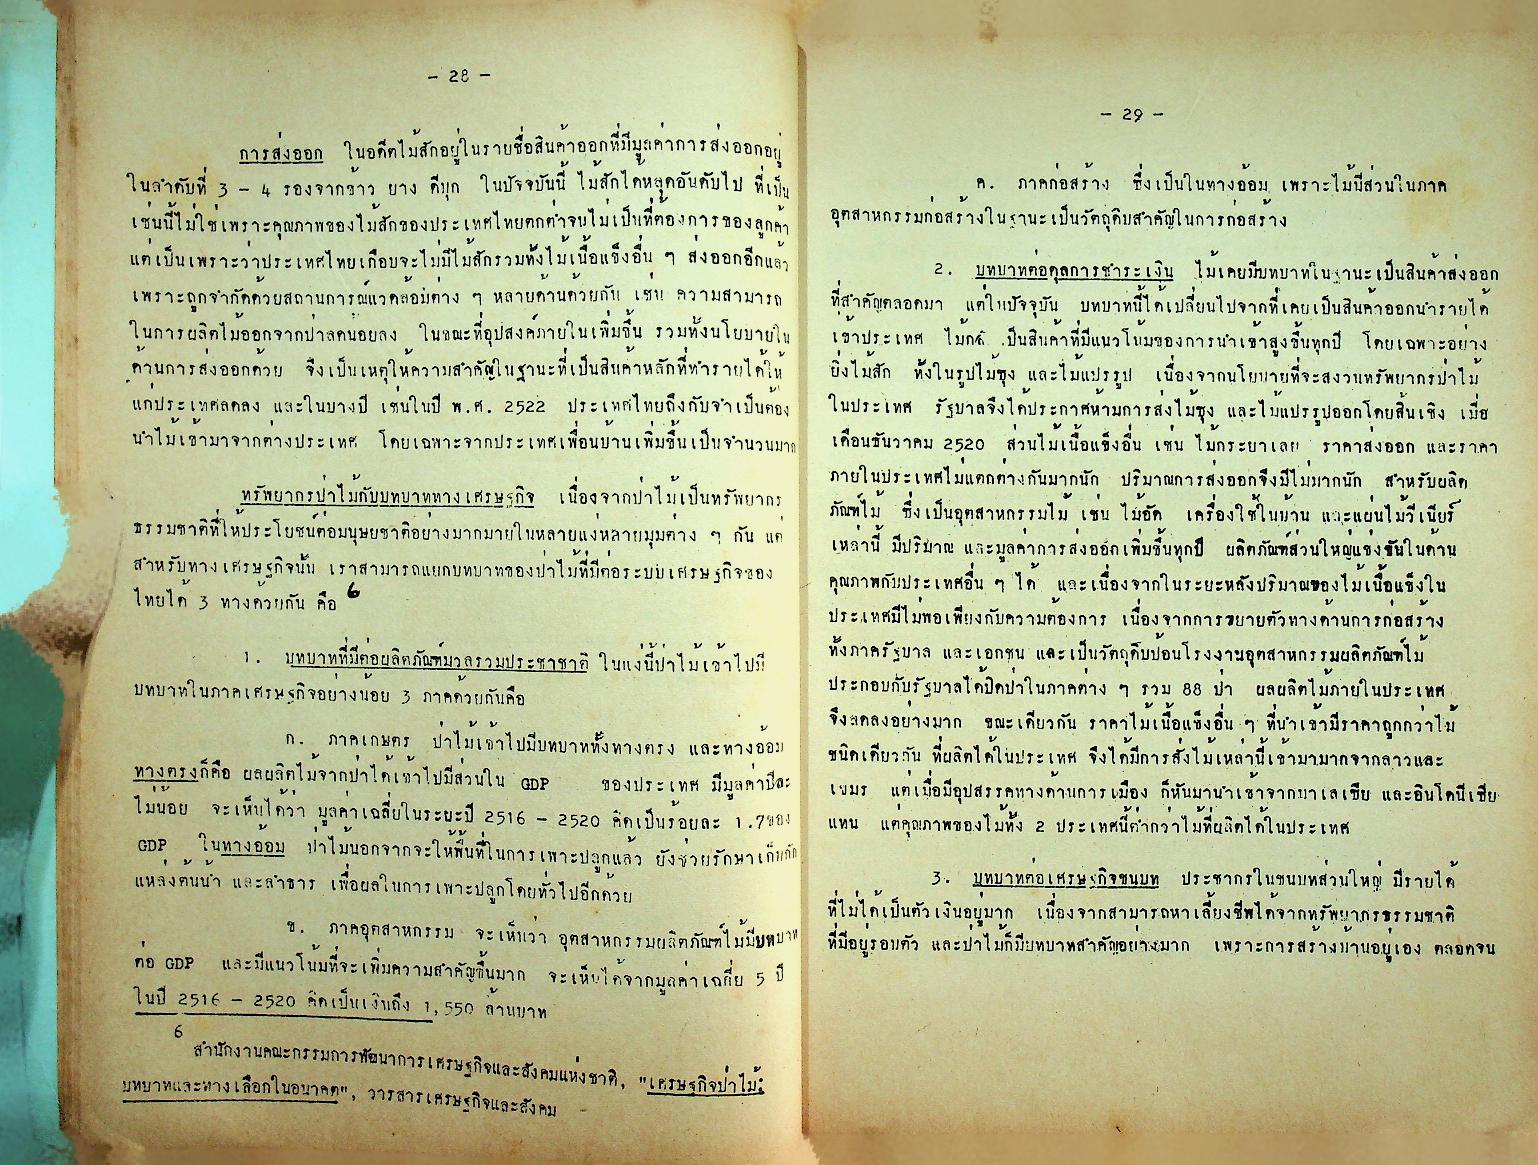 - 28 -
การส่งออก ในอดีตไม้สักอยู่ในรายชื่อสินค้าออกที่มีมูลค่าการส่งออกอยู่
ในลำดับที่ 3 - 4 รองจากข้าว ยาง ดีบุก ในปัจจุบันนี้ ไม้สักได้หลุดอันดับไป ที่เป็น
เช่นนี้ไม่ใช่เพราะคุณภาพของไม้สักของประเทศไทยตกต่ำจนไม่เป็นที่ต้องการของลูกค้า
แต่เป็นเพราะว่าประเทศไทยเกือบจะไม่มีไม้สักรวมทั้งไม้เนื้อแข็งอื่น ๆ ส่งออกอีกแล้ว
เพราะถูกจำกัดด้วยสถานการณ์แวดล้อมต่าง ๆ หลายด้านด้วยกัน เช่น ความสามารถ
ในการผลิตไม้ออกจากป่าลดน้อยลง ในขณะที่อุปสงค์ภายในเพิ่มขึ้น รวมทั้งนโยบายใน
ด้านการส่งออกด้วย จึงเป็นเหตุให้ความสำคัญในฐานะที่เป็นสินค้าหลักที่ทำรายได้ให้
แก่ประเทศลดลง และในบางปี เช่นในปี พ.ศ. 2522 ประเทศไทยถึงกับจำเป็นต้อง
นำไม้เข้ามาจากต่างประเทศ โดยเฉพาะจากประเทศเพื่อนบ้านเพิ่มขึ้นเป็นจำนวนมาก
ทรัพยากรป่าไม้กับบทบาททางเศรษฐกิจ เนื่องจากป่าไม้เป็นทรัพยากร
ธรรมชาติที่ให้ประโยชน์ต่อมนุษยชาติอย่างมากมายในหลายแง่หลายมุมต่าง ๆ กัน แต่
สำหรับทางเศรษฐกิจนั้น เราสามารถแยกบทบาทของป่าไม้ที่มีต่อระบบเศรษฐกิจของ
ไทยได้ 3 ทางด้วยกัน คือ 6
1. บทบาทที่มีต่อผลิตภัณฑ์มวลรวมประชาชาติ ในแง่นี้ป่าไม้เข้าไปมี
บทบาทในภาคเศรษฐกิจอย่างน้อย 3 ภาคด้วยกันคือ
ก. ภาคเกษตร ป่าไม้เข้าไปมีบทบาททั้งทางตรง และทางอ้อม
ทางตรงก็คือ ผลผลิตไม้จากป่าได้เข้าไปมีส่วนใน GDP ของประเทศ มีมูลค่าปีละ
ไม่น้อย จะเห็นได้ว่า มูลค่าเฉลี่ยในระยะปี 2516 - 2520 คิดเป็นร้อยละ 1.7ของ
GDP ในทางอ้อม ป่าไม้นอกจากจะให้พื้นที่ในการเพาะปลูกแล้ว ยังช่วยรักษาเก็บกัก
แหล่งต้นน้ำ และลำธาร เพื่อผลในการเพาะปลูกโดยทั่วไปอีกด้วย
ข. ภาคอุตสาหกรรม จะเห็นว่า อุตสาหกรรมผลิตภัณฑ์ไม้มีบทบาท
ต่อ GDP และมีแนวโน้มที่จะเพิ่มความสำคัญขึ้นมาก จะเห็นได้จากมูลค่าเฉลี่ย 5 ปี
ในปี 2516 - 2520 คิดเป็นเงินถึง 1,550 ล้านบาท
6
สำนักงานคณะกรรมการพัฒนาการเศรษฐกิจและสังคมแห่งชาติ, "เศรษฐกิจป่าไม้:
บทบาทและทางเลือกในอนาคต", วารสารเศรษฐกิจและสังคม
- 29 -
ค. ภาคก่อสร้าง ซึ่งเป็นในทางอ้อม เพราะไม้มีส่วนในภาค
อุตสาหกรรมก่อสร้างในฐานะเป็นวัตถุดิบสำคัญในการก่อสร้าง
2. บทบาทต่อดุลการชำระเงิน ไม้เคยมีบทบาทในฐานะเป็นสินค้าส่งออก
ที่สำคัญตลอดมา แต่ในปัจจุบัน บทบาทนี้ได้เปลี่ยนไปจากที่เคยเป็นสินค้าออกนำรายได้
เข้าประเทศ ไม้กลับเป็นสินค้าที่มีแนวโน้มของการนำเข้าสูงขึ้นทุกปี โดยเฉพาะอย่าง
ยิ่งไม้สัก ทั้งในรูปไม้ซุง และไม้แปรรูป เนื่องจากนโยบายที่จะสงวนทรัพยากรป่าไม้
ในประเทศ รัฐบาลจึงได้ประกาศห้ามการส่งไม้ซุง และไม้แปรรูปออกโดยสิ้นเชิง เมื่อ
เดือนธันวาคม 2520 ส่วนไม้เนื้อแข็งอื่น เช่น ไม้กระยาเลย ราคาส่งออก และราคา
ภายในประเทศไม่แตกต่างกันมากนัก ปริมาณการส่งออกจึงมีไม่มากนัก สำหรับผลิต
ภัณฑ์ไม้ ซึ่งเป็นอุตสาหกรรมไม้ เช่น ไม้อัด เครื่องใช้ในบ้าน และแผ่นไม้วีเนียร์
เหล่านี้ มีปริมาณ และมูลค่าการส่งออกเพิ่มขึ้นทุกปี ผลิตภัณฑ์ส่วนใหญ่แข่งขันในด้าน
คุณภาพกับประเทศอื่น ๆ ได้ และเนื่องจากในระยะหลังปริมาณของไม้เนื้อแข็งใน
ประเทศมีไม่พอเพียงกับความต้องการ เนื่องจากการขยายตัวทางด้านการก่อสร้าง
ทั้งภาครัฐบาล และเอกชน และเป็นวัตถุดิบป้อนโรงงานอุตสาหกรรมผลิตภัณฑ์ไม้
ประกอบกับรัฐบาลได้ปิดป่าในภาคต่าง ๆ รวม 88 ป่า ผลผลิตไม้ภายในประเทศ
จึงลดลงอย่างมาก ขณะเดียวกัน ราคาไม้เนื้อแข็งอื่น ๆ ที่นำเข้ามีราคาถูกกว่าไม้
ชนิดเดียวกัน ที่ผลิตได้ในประเทศ จึงได้มีการสั่งไม้เหล่านี้เข้ามามากจากลาวและ
เขมร แต่เมื่อมีอุปสรรคทางด้านการเมือง ก็หันมานำเข้าจากมาเลเซีย และอินโดนีเซีย
แทน แต่คุณภาพของไม้ทั้ง 2 ประเทศนี้ต่ำกว่าไม้ที่ผลิตได้ในประเทศ
3. บทบาทต่อเศรษฐกิจชนบท ประชากรในชนบทส่วนใหญ่ มีรายได้
ที่ไม่ได้เป็นตัวเงินอยู่มาก เนื่องจากสามารถหาเลี้ยงชีพได้จากทรัพยากรธรรมชาติ
ที่มีอยู่รอบตัว และป่าไม้ก็มีบทบาทสำคัญอย่างมาก เพราะการสร้างบ้านอยู่เอง ตลอดจน